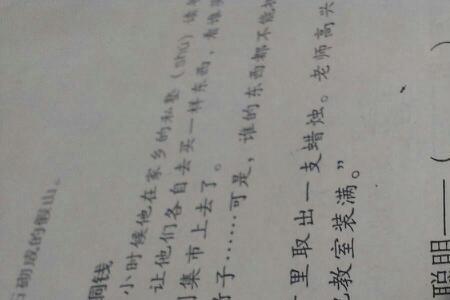 砌成的假山。
铜钱
小时候他在家乡的私塾（shú）读
让他们各自去买一样东西，看谁
到集市上去了。
子……可是，谁的东西都不能把
里取出一支蜡烛。老师高兴
教室装满。”
聪明——（ ）